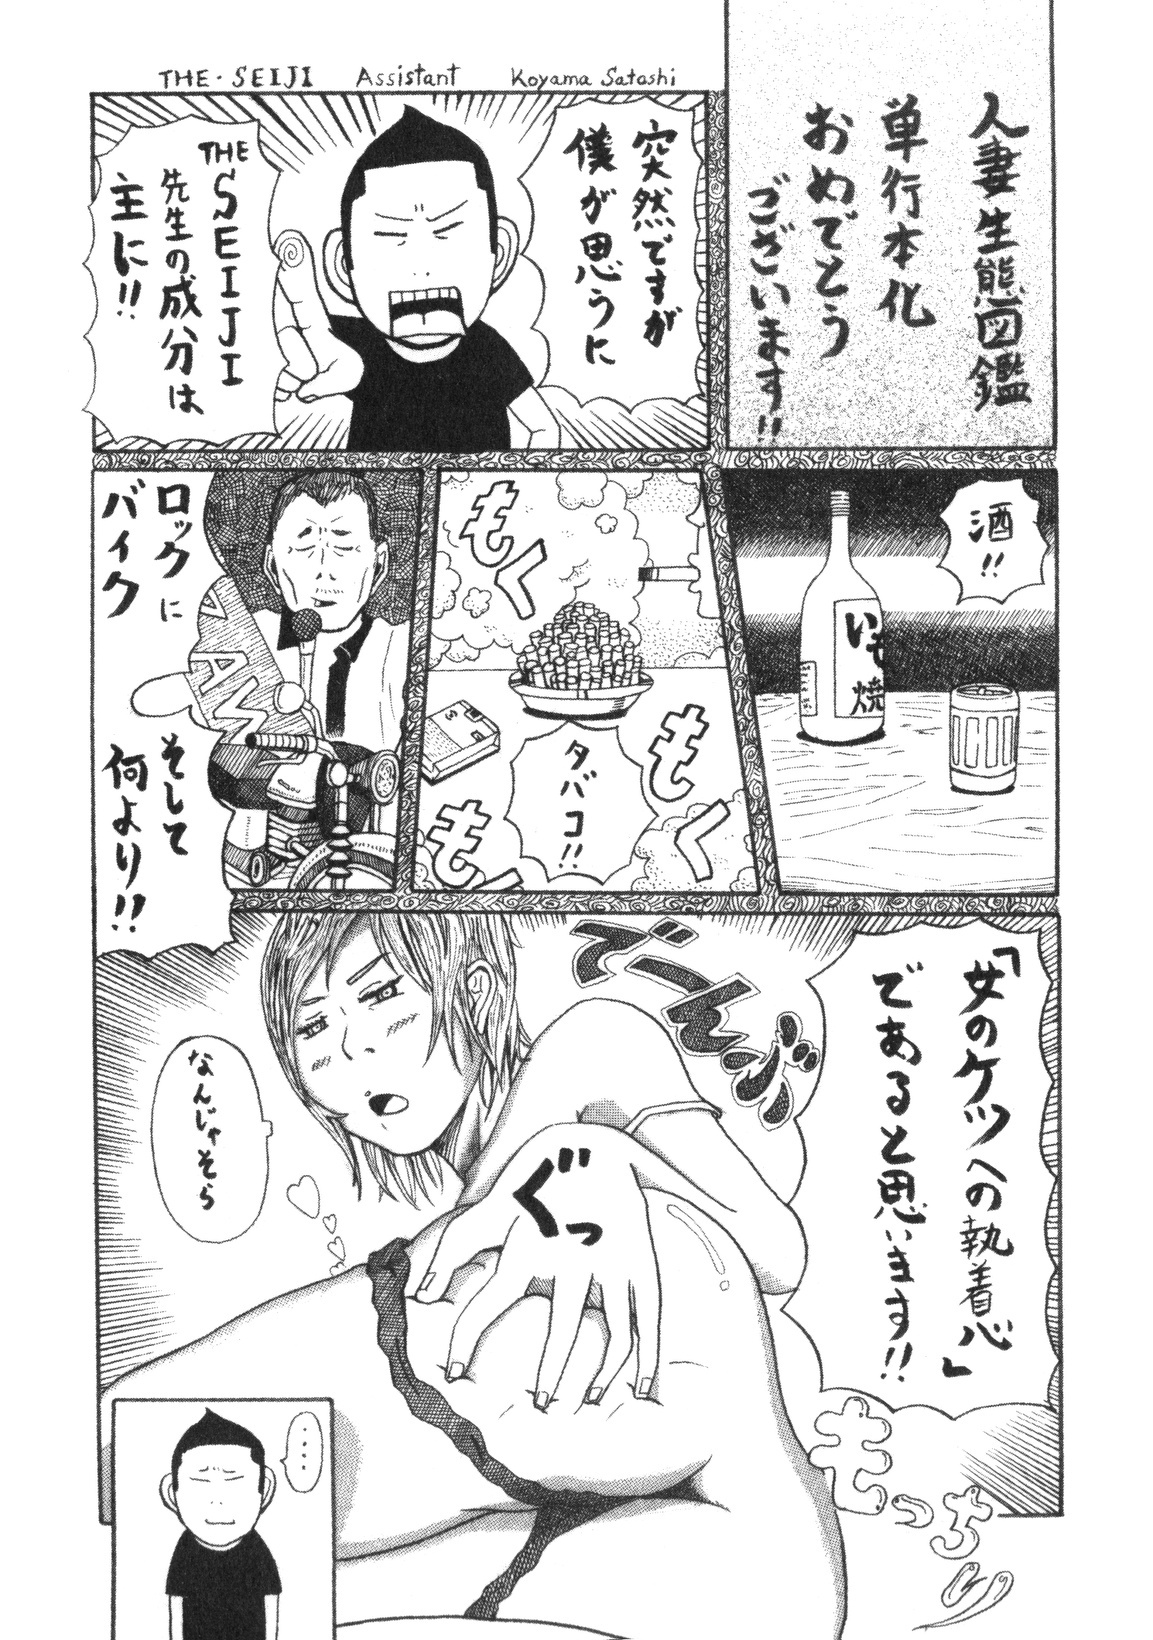 THE・SEIJI Assistant Koyama Satoshi
人妻生態図鑑
単行本化
おめでとう
ございます!!
突然ですが
僕が思うに
THE
SEIJI
先生の成分は
主に!!
酒!!
いも
焼
もく
タバコ!!
もく
もく
ロックに
バイク
そして
何より!!
「女のケツへの執着心」
であると思います!!
でんっ
ぐっ
なんじゃそら
もっちり
……